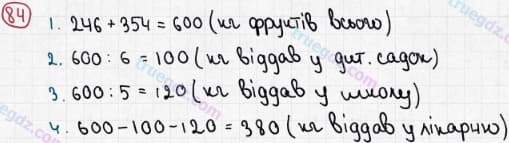 84
1. 246 + 354 = 600 (кг фруктів всього)
2. 600 : 6 = 100 (кг віддав у дит. садок)
3. 600 : 5 = 120 (кг віддав у школу)
4. 600 - 100 - 120 = 380 (кг віддав у лікарню)